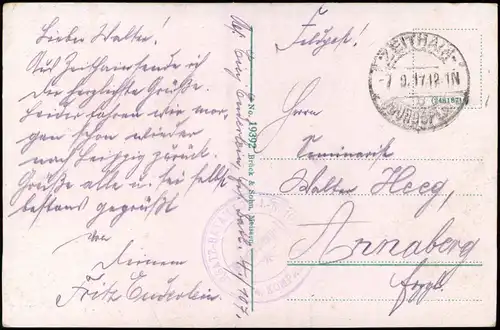 Lieber Walter!
Aus Zeithain sende ich
Dir herzlichste Grüße.
Leider fahren wir mor-
gen schon wieder
nach Leipzig zurück.
Grüße alle u. sei selbst
bestens gegrüßt
von
Deinem
Fritz Enderlein.
Feldpost!
ZEITHAIN
9.17.12-1N
Herrn
Seminarist
Walter Heeg,
Annaberg
Erzgb.
No. 19392 Brück & Sohn, Meissen.